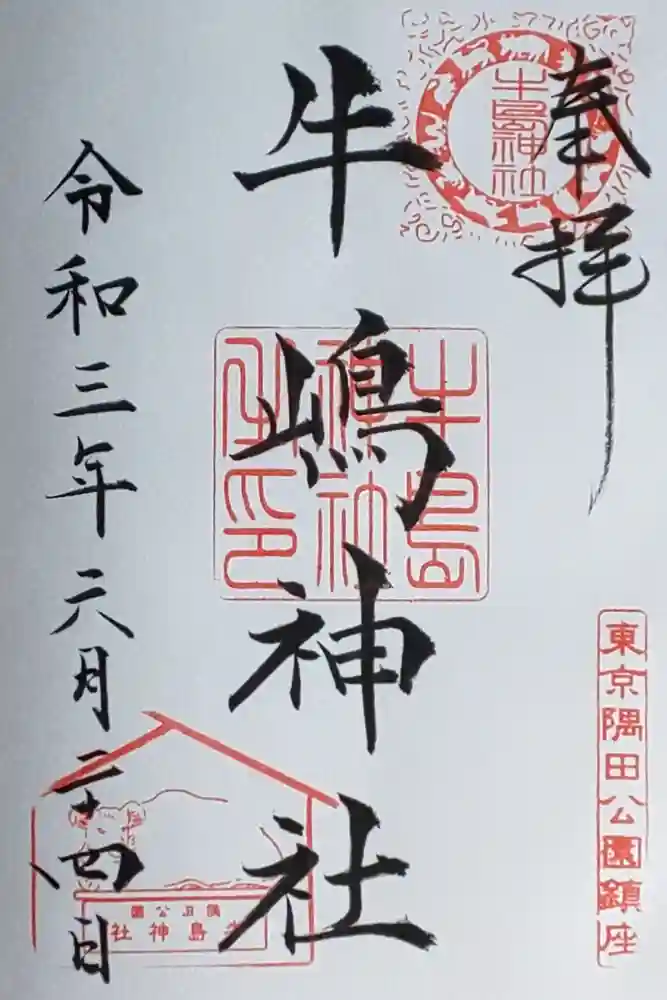 奉拝
牛島神社
東京隅田公園鎮座
牛嶋神社
牛島
神社
之印
令和三年六月二十四日
隅田公園
牛島神社